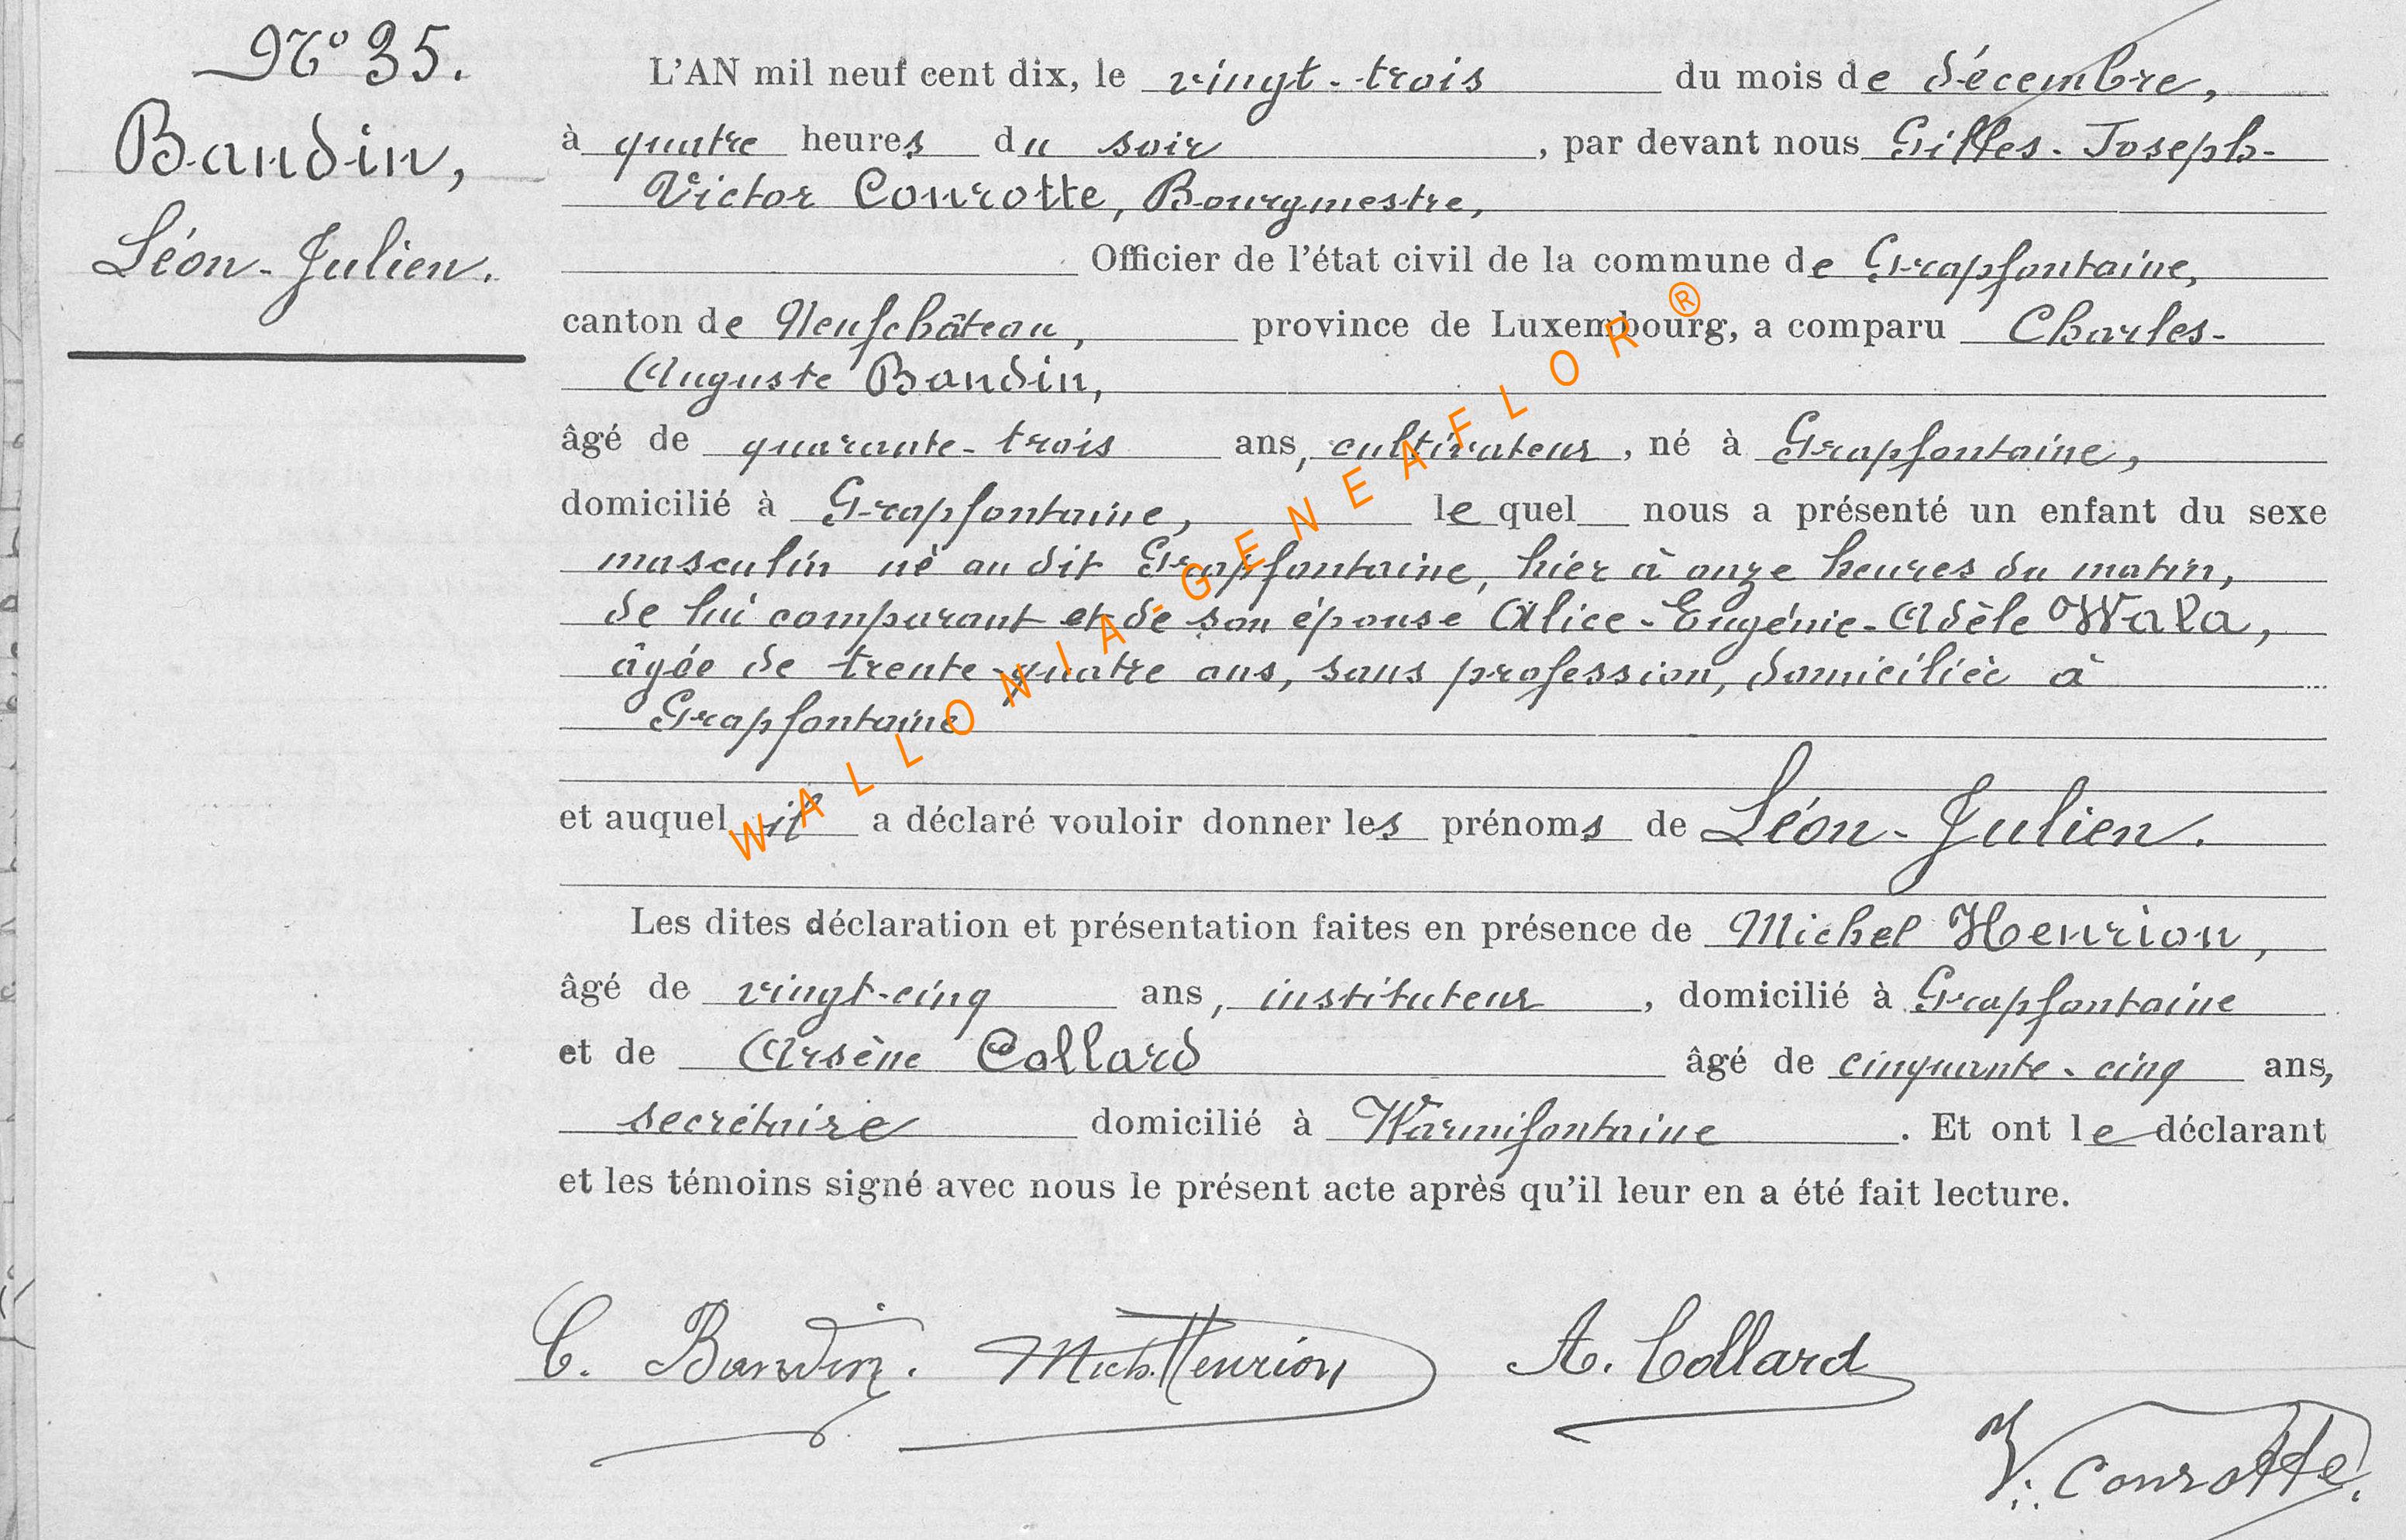 N° 35.
Baudin,
Léon-Julien.
L'AN mil neuf cent dix, le vingt-trois du mois de décembre,
à quatre heures du soir, par devant nous Gilles-Joseph-
Victor Conrotte, Bourgmestre,
Officier de l'état civil de la commune de Grapfontaine,
canton de Neufchâteau, province de Luxembourg, a comparu Charles-
Auguste Baudin,
âgé de quarante-trois ans, cultivateur, né à Grapfontaine,
domicilié à Grapfontaine, lequel nous a présenté un enfant du sexe
masculin né au dit Grapfontaine, hier à onze heures du matin,
de lui comparant et de son épouse Alice-Eugénie-Adèle Wala,
âgée de trente-quatre ans, sans profession, domiciliée à
Grapfontaine
et auquel il a déclaré vouloir donner les prénoms de Léon-Julien.
Les dites déclaration et présentation faites en présence de Michel Henrion,
âgé de vingt-cinq ans, instituteur, domicilié à Grapfontaine
et de Arsène Collard âgé de cinquante-cinq ans,
secrétaire domicilié à Warmifontaine. Et ont le déclarant
et les témoins signé avec nous le présent acte après qu'il leur en a été fait lecture.
C. Baudin. Mich. Henrion A. Collard
V. Conrotte.
WALLONIA-GENEAFLOR®